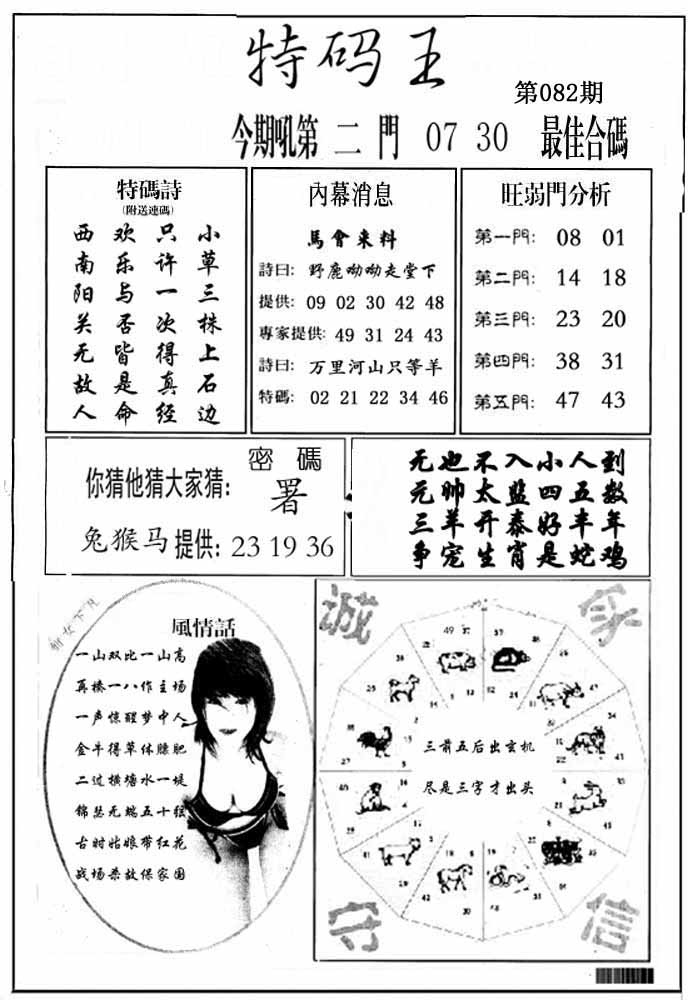 特码王
第082期
今期吼第二門 07 30 最佳合碼
特碼詩
(附送連碼)
小草三株上石边
只许一次得真经
欢乐与否皆是命
西南阳关无故人
內幕消息
馬會来料
詩曰: 野鹿呦呦走堂下
提供: 09 02 30 42 48
專家提供: 49 31 24 43
詩曰: 万里河山只等羊
特碼: 02 21 22 34 46
旺弱門分析
第一門: 08 01
第二門: 14 18
第三門: 23 20
第四門: 38 31
第五門: 47 43
密碼
你猜他猜大家猜: 署
兔猴马提供: 23 19 36
无也不入小人到
元帅太监四五数
三羊开泰好丰年
争宠生肖是蛇鸡
風情話
一山双比一山高
再榛一八作主场
一声惊醒梦中人
金牛得草体膘肥
二过横塘水一堤
锦瑟无端五十弦
古时姑娘带红花
战场杀敌保家国
诚
守
信
三前五后出玄机
尽是三字才出头
49
37